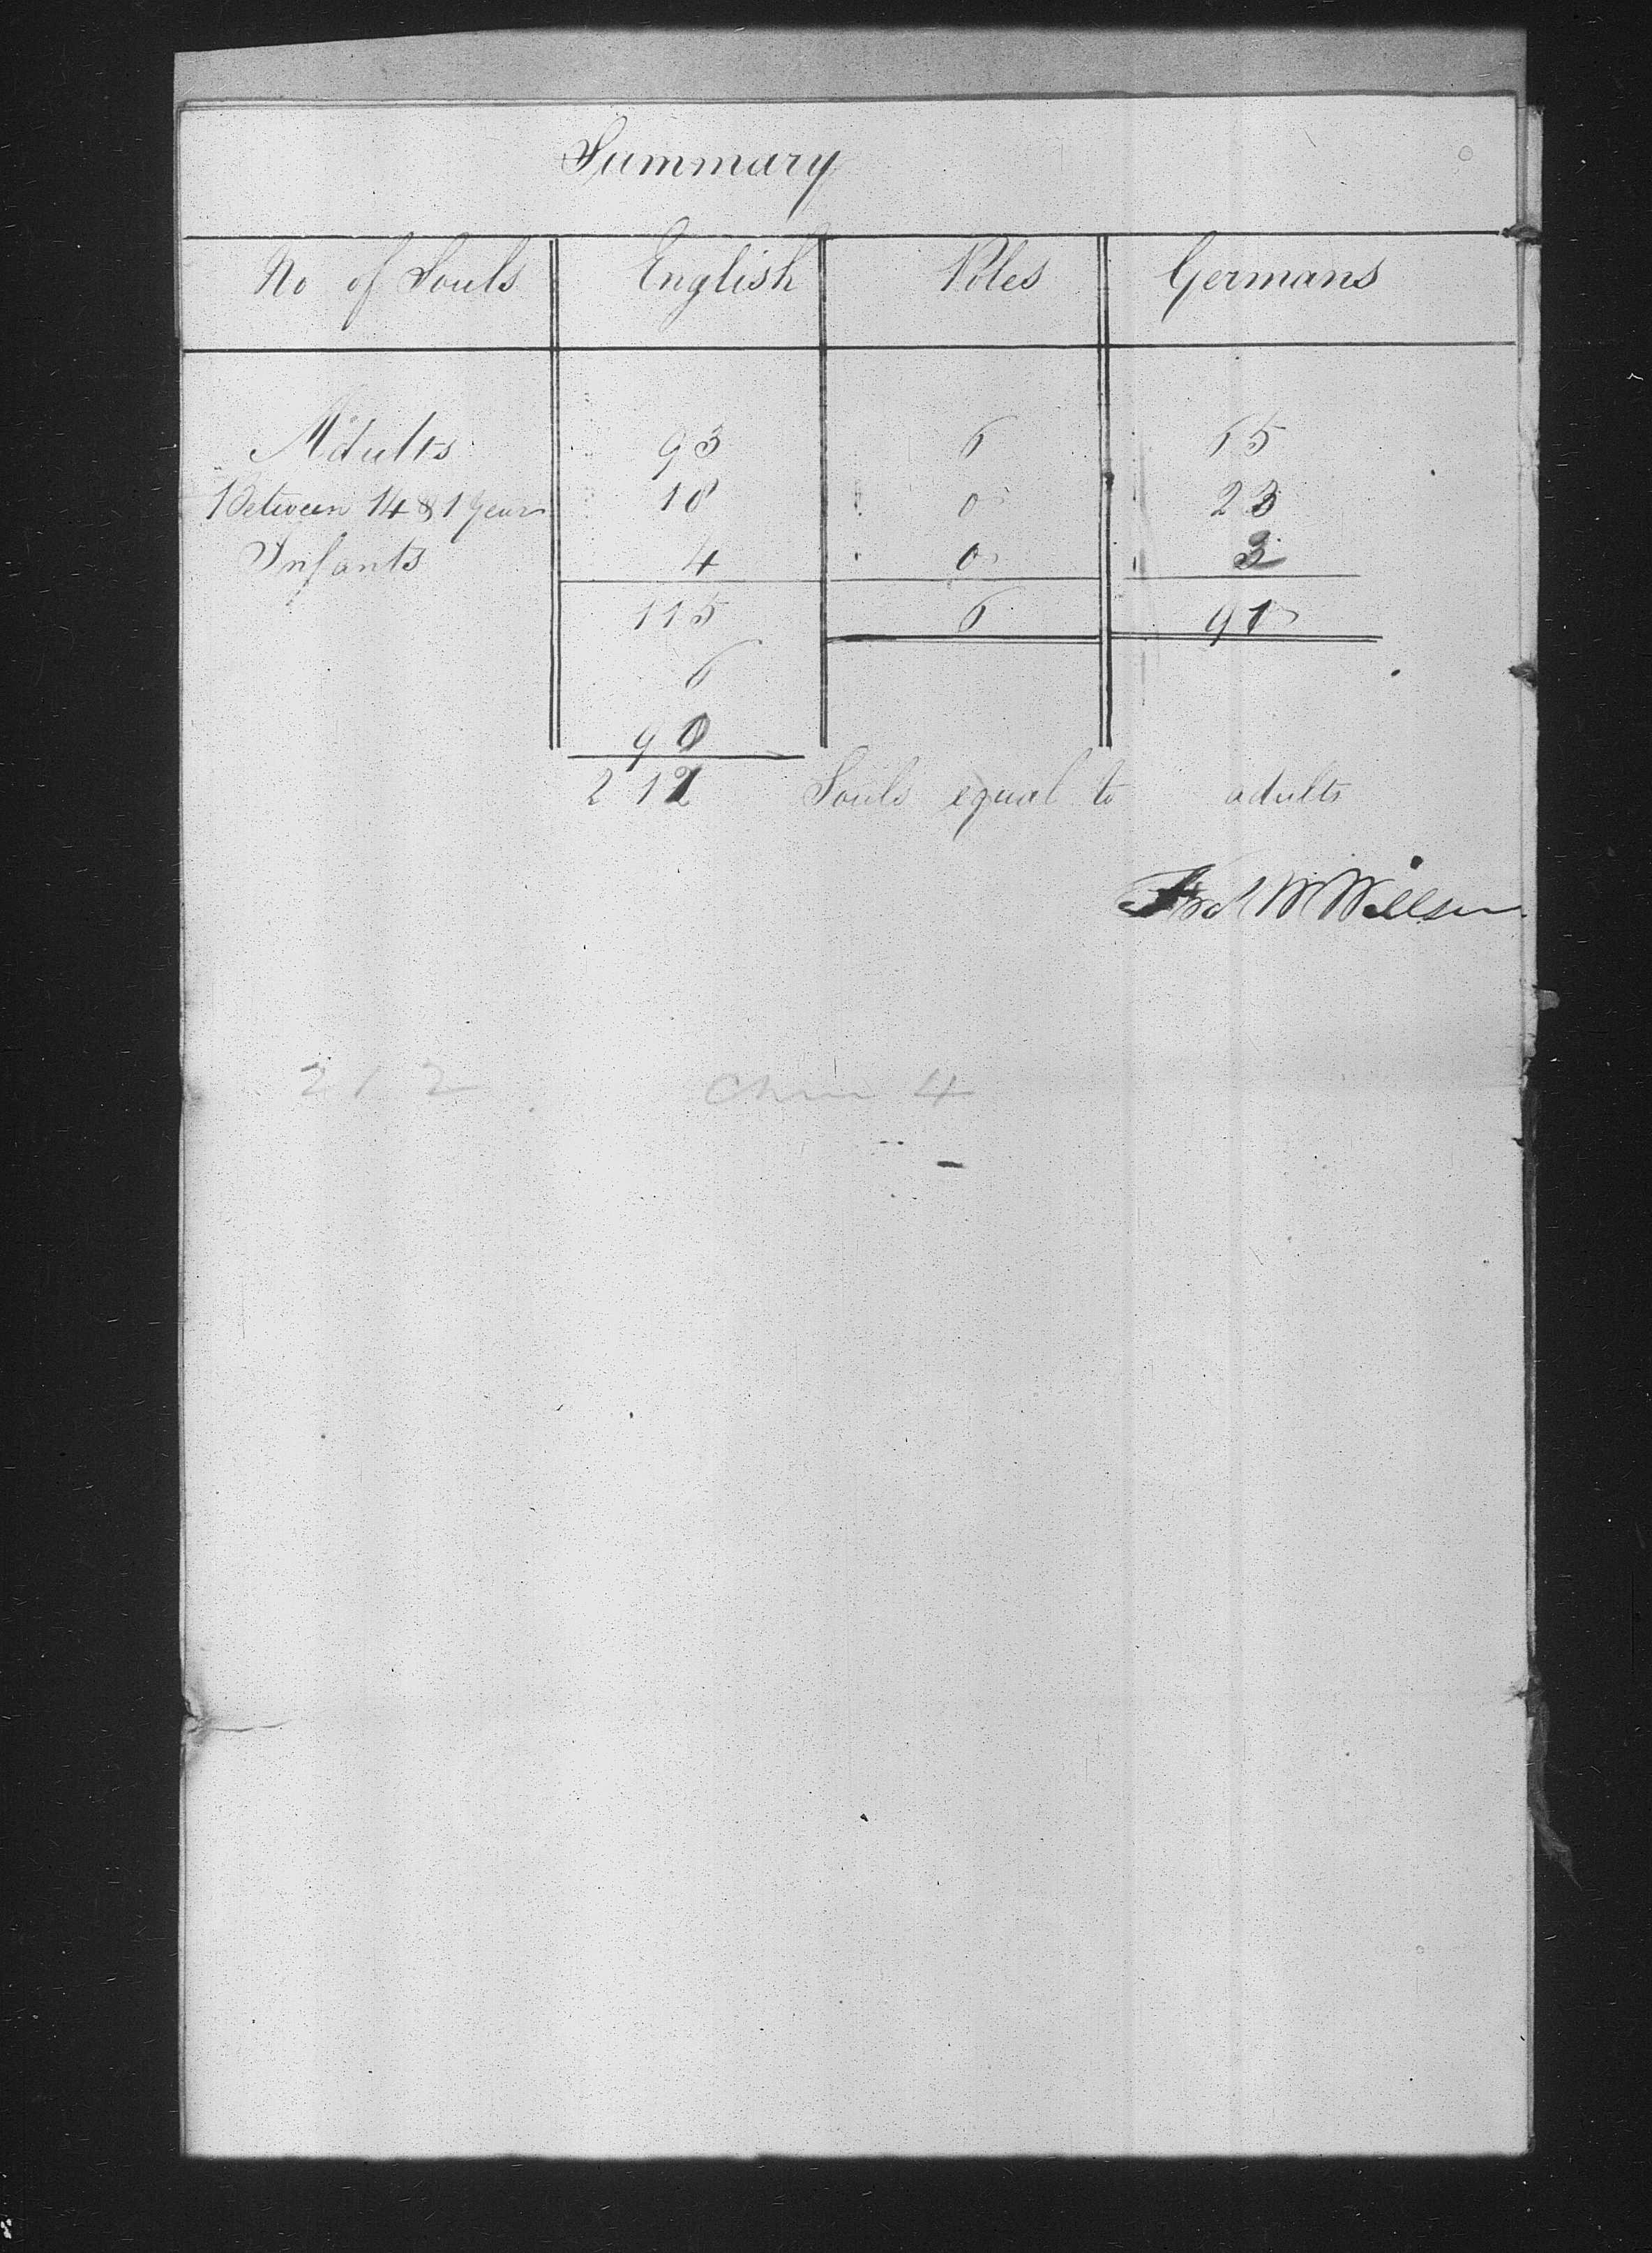 Summary
No of Souls English Poles Germans
Adults 93 6 65
Between 14 & 1 years 18 0 23
Infants 4 0 3
115 6 91
6
91
212 Souls equal to adults
Fred W Willson
212 4